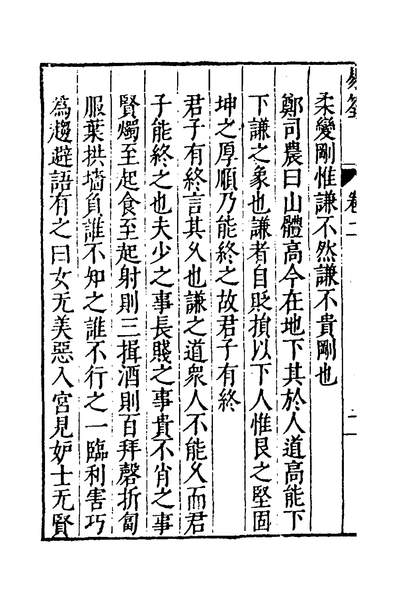 易筌 卷二 二
柔變剛惟謙不然謙不貴剛也
鄭司農曰山體高今在地下其於人道高能下
下謙之象也謙者自貶損以下人惟艮之堅固
坤之厚順乃能終之故君子有終
君子有終言其久也謙之道眾人不能久而君
子能終之也夫少之事長賤之事貴不肖之事
賢燭至起食至起射則三揖酒則百拜磬折匍
服葉拱墻負誰不知之誰不行之一臨利害巧
為趨避語有之曰女无美惡入宮見妒士无賢